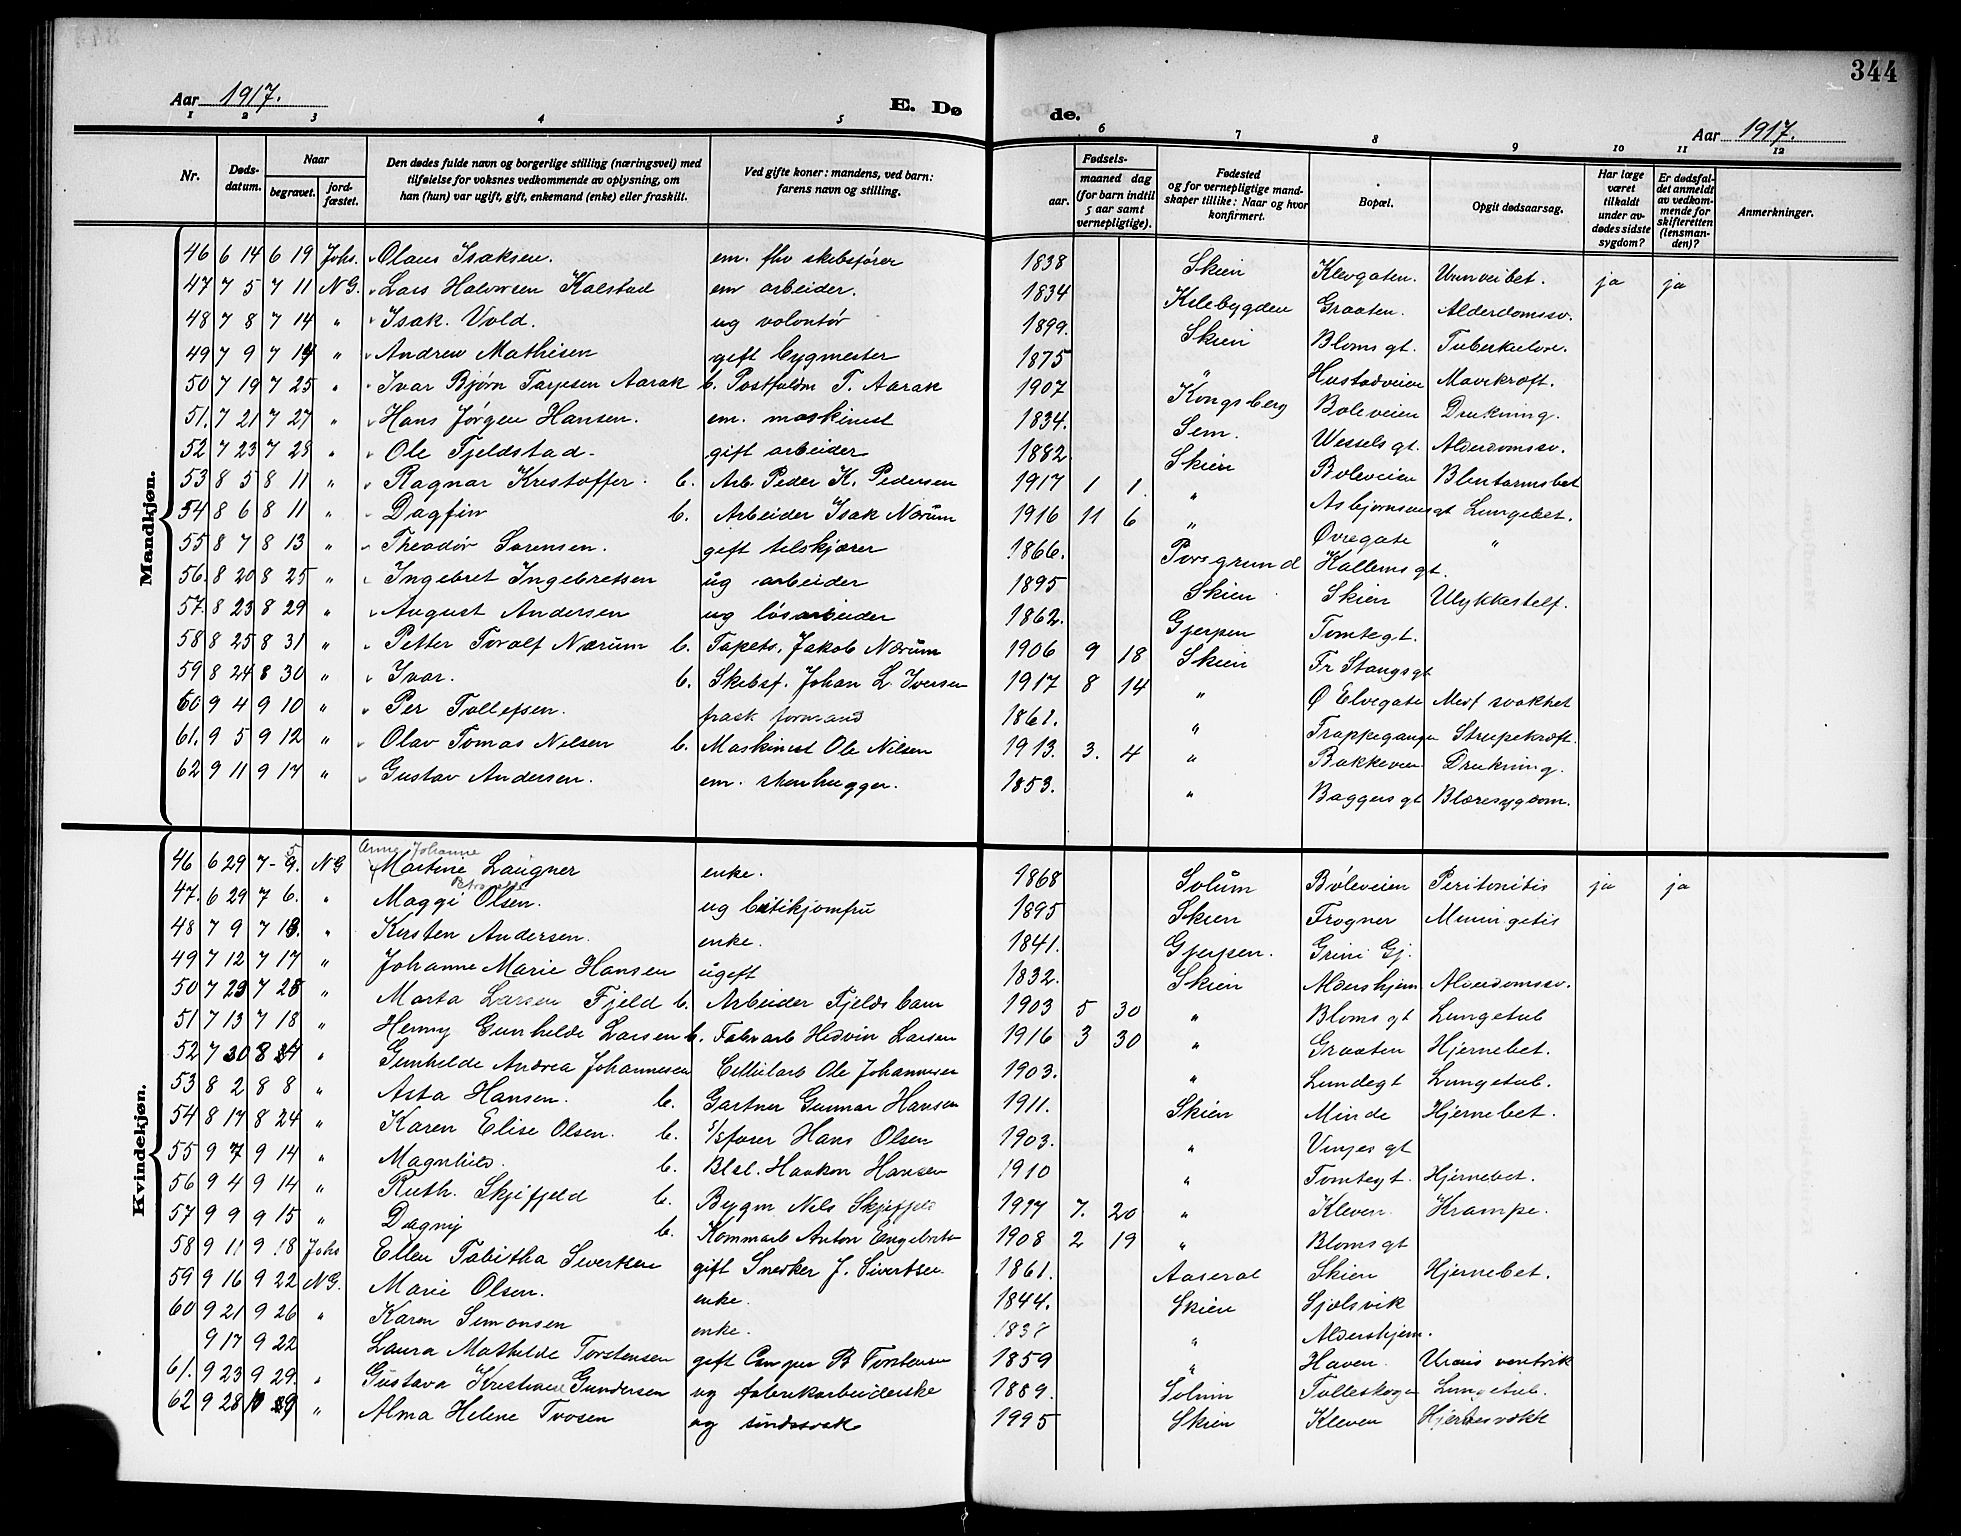 344
Aar 1917.
E. Dø
de.
Aar 1917.
1 2 3 4 5 6 7 8 9 10 11 12
Nr.
Døds-datum.
Naar
begravet.
jord-fæstet.
Den dødes fulde navn og borgerlige stilling (næringsvei) med
tilføielse for voksnes vedkommende av oplysning, om
han (hun) var ugift, gift, enkemand (enke) eller fraskilt.
Ved gifte koner: mandens, ved barn:
farens navn og stilling.
Fødsels-
aar.
maaned dag
(for barn indtil
5 aar samt
vernepligtige).
Fødested
og for vernepligtige mand-
skaper tillike: Naar og hvor
konfirmert.
Bopæl.
Opgit dødsaarsag.
Har læge
været
tilkaldt
under av-
dødes sidste
sygdom?
Er dødsfal-
det anmeldt
av vedkom-
mende for
skifteretten
(lensman-
den)?
Anmerkninger.
Mandkjøn.
46 6 14 6 19 Johs. Olaus Isaksen. em. fhv skibsfører 1838 Skien Klevgaten. ja ja
47 7 5 7 11 NG. Lars Halvorsen Kalstad em arbeider. 1834 Kilebygden Graaten. Alderdomssv.
48 7 8 7 14 " Isak. Vold. ug volontør 1899. Skien Bloms gt. Tuberkulose.
49 7 9 7 14 " Andrew Mathisen gift bygmester 1875 " Hustadveien Mavekræft.
50 7 19 7 25 " Ivar Bjørn Tarjesen Aarak b. Postfuldm T. Aarak 1907 Kongsberg Boleveien Drukning.
51. 7 21 7 27 " Hans Jørgen Hansen. em. maskinist 1834. Sem. Wessels gt. Alderdomssv.
52 7 23 7 28 " Ole Fjeldstad. gift arbeider 1882 Skien Boleveien Blintarmsbet
53 8 5 8 11 " Ragnar Kristoffer. b. Arb. Peder K. Pedersen 1917 1 1 " Asbjørnsens gt Lungebet.
54 8 6 8 11 " Dagfin b. Arbeider Isak Nærum 1916 11 6 " Øvregate "
55 8 7 8 13 " Theodor Sørensen. gift tilskjærer 1866. Porsgrund Kallems gt.
56. 8 20 8 25 " Ingebret Ingebretsen ug arbeider 1895 Skien Skien Ulykkestilf.
57. 8 23 8 29 " August Andersen ug løsarbeider 1862. Gjerpen Tomtegt.
58 8 25 8 31 " Petter Toralf Nærum b. Tapets. Jakob Nærum 1906 9 18 Skien Fr Stangsgt
59 8 24 8 30 " Ivar. b. Skibsf. Johan L. Iversen 1917 8 14 " Ø Elvegate Medf svakhet
60 9 4 9 10 " Per Tollefsen. frask formand 1861. " Trappegangen Strupekræft.
61. 9 5 9 12 " Olav Tomas Nilsen b. Maskinist Ole Nilsen 1913. 3. 4 " Bakkeveien Drukning.
62 9 11 9 17 " Gustav Andersen. em. stenhugger. 1853. " Baggers gt Blæresygdom.
Kvindekjøn.
Anne Johanne
46 6 29 7 - 9. NG Martine Laugner enke. 1868 Solum Bøleveien Peritonitis ja ja
47. 6 29 7 6. " Maggi Olsen. ug butikjomfru 1895 Skien Frogner Meningetis
48 7 9 7 13. " Kirsten Andersen. enke. 1841. Gjerpen. Grini Gj.
49 7 12 7 17 " Johanne Marie Hansen ugift 1832. Skien Aldershjem Alderdomssv.
50 7 23 7 28 " Marta Larsen Fjeld b. Arbeider Fjelds barn 1903 5 30 " Bloms gt Lungetub
51 7 13 7 18 " Henny Gunhilde Larsen b. Fabrarb Hedvin Larsen 1916 3 30 " Graaten Hjernebet.
52 7 30 8 " Gunhilde Andrea Johannesen Cellularb Ole Johannesen 1903. " Lundegt Lungetub.
53 8 2 8 8 " Asta Hansen. b. Gartner Gunnar Hansen 1911. Skien Minde Hjernebet.
54 8 17 8 24 " Karen Elise Olsen. b. S/sfører Hans Olsen 1903. " Vinjes gt
55 9 7 9 14 " Magnhild. b. Blsl. Haakon Hansen 1910 " Tomtegt. Hjernebet.
56 9 4 9 14 " Ruth. Skjefjeld b. Bygm Nils Skjefjeld 1917 7. 20 " Kleven. Krampe.
57 9 9 9 15 " Dagny b. Kommarb Anton Engebrets 1908 2 19 " Bloms gt
58 9 11 9 18 Johs Ellen Tabitha Sivertsen gift Snedker J. Sivertsen. 1861. Aaseral Skien Hjernebet.
59 9 16 9 22 NG. Marie Olsen. enke. 1844. Skien Gjølsvik
60 9 21 9 26 " Karen Simonsen enke. 1838 " Aldershjem.
9 17 9 22 Laura Mathilde Torstensen gift B Torstensen 1859 " Haven.
61. 9 23 9 29. " Gustava Kristiane Gundersen ug fabrikarbeiderske 1889. Solum Lungetub.
62 9 28 10 " Alma Helene Tvosen ug sindssvak 1995 Skien Kleven Hjertesvækk